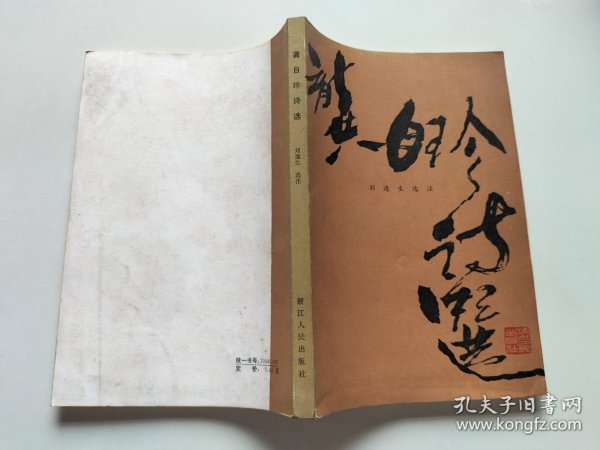 龔自珍詩選
刘逸生选注
龚自珍诗选
刘逸生 选注
浙江人民出版社
统一书号：
定 价：
孔夫子旧书网
www.kongfz.com